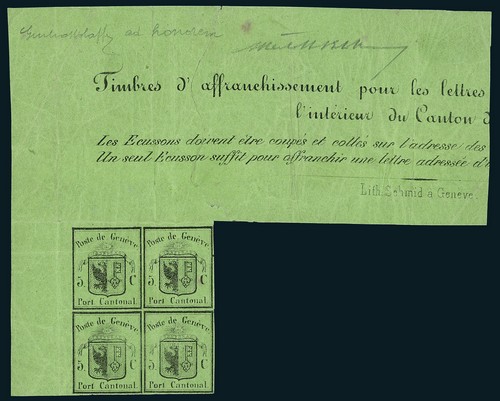 ad honorem
Timbres d'affranchissement pour les lettres
l'intérieur du Canton d
Les Ecussons doivent être coupés et collés sur l'adresse des
Un seul Ecusson suffit pour affranchir une lettre adressée d'
Lith. Schmid à Genève.
Poste de Genève
5 C
Port Cantonal.
Poste de Genève
5 C
Port Cantonal.
Poste de Genève
5 C
Port Cantonal.
Poste de Genève
5 C
Port Cantonal.